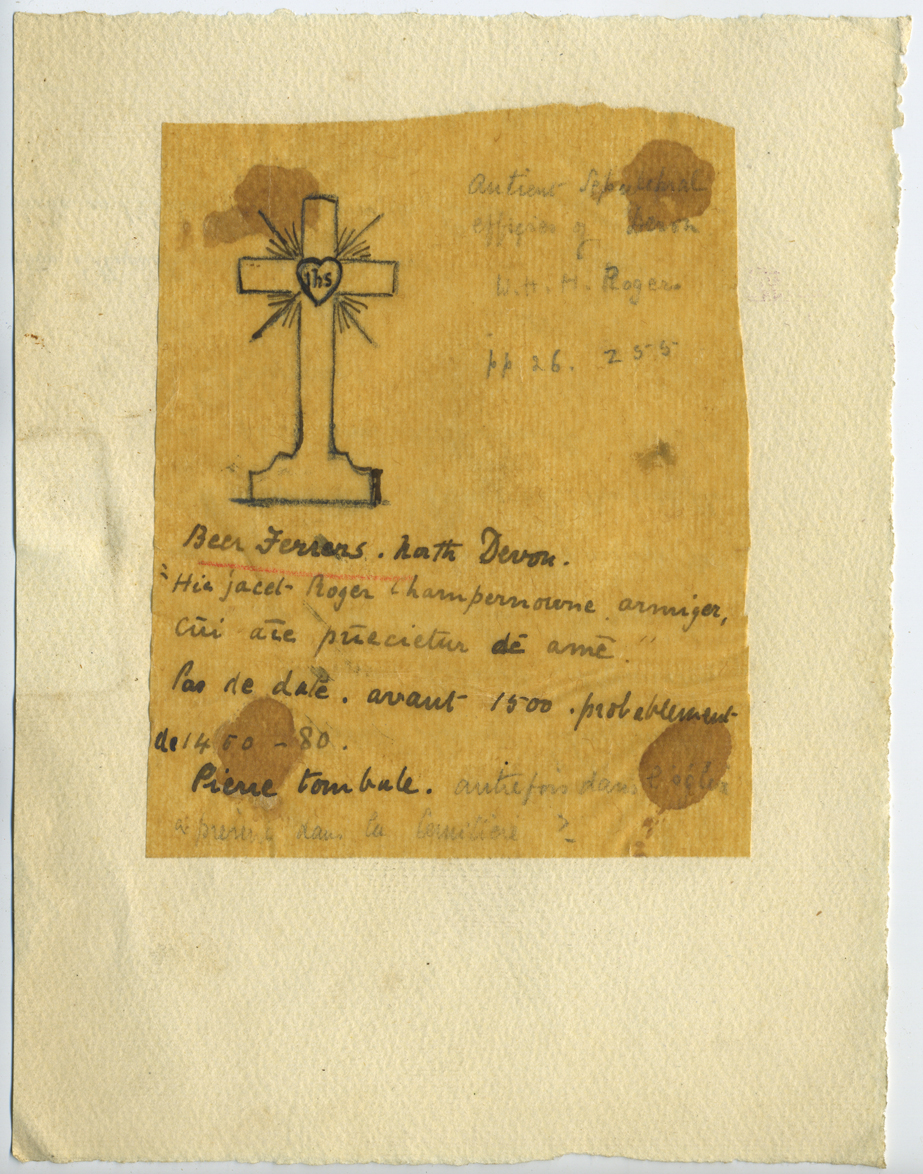 Antient Sepulchral
effigies of Devon
W. H. H. Roger.
pp 26. 255
ihs
Beer Ferrers. North Devon.
"Hic jacet Roger Champernowne armiger,
cūi āīe pr̄ecietur dē amē"
Pas de date. avant 1500. probablement
de 1460 - 80.
Pierre tombale. autrefois dans l'église
à présent dans le cimetière